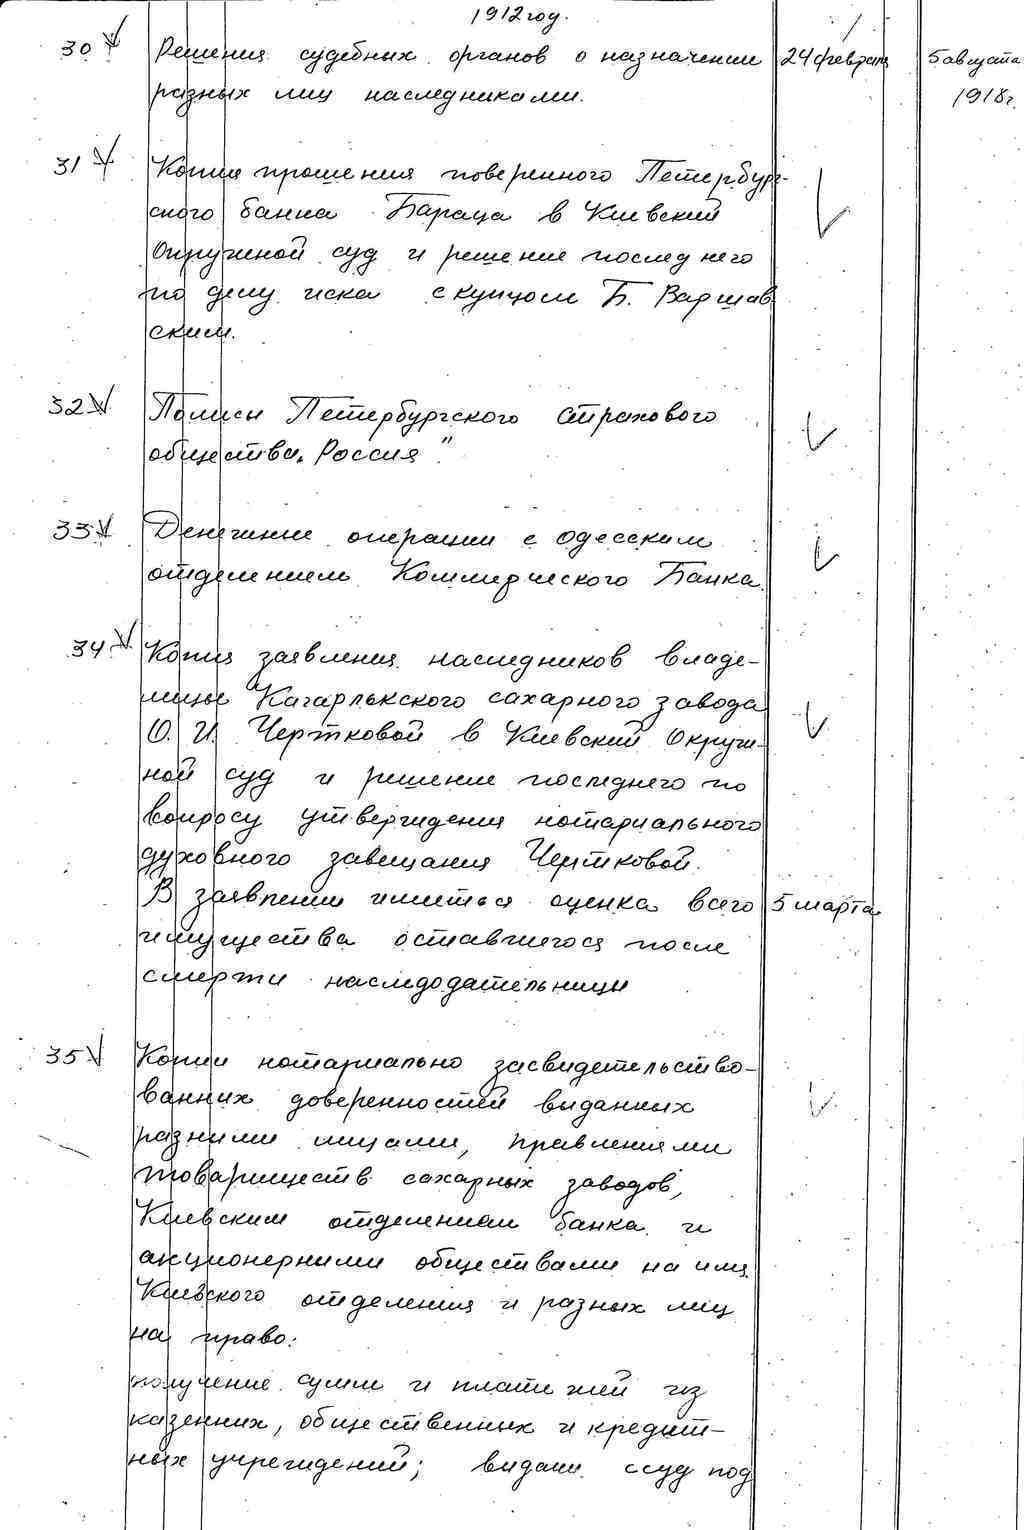 1912 год.
30 Решения судебных органов о назначении 24 февраля 5 августа
разных лиц наследниками. 1918 г.
31 Копия прошения поверенного Петербург-
ского банка Бараца в Киевский
Окружной суд и решение последнего
по делу иска с купцом Б. Варшав
ским.
32 Полисы Петербургского страхового
общества „Россия"
33 Денежные операции с одесским
отделением Коммерческого Банка.
34 Копия заявления наследников владе-
лицы Кагарлыкского сахарного завода
О. И. Чертковой в Киевский Окруж-
ной суд и решение последнего по
вопросу утверждения нотариального
духовного завещания Чертковой.
В заявлении имеется оценка всего 5 марта
имущества оставшегося после
смерти наследодательницы
35 Копии нотариально засвидетельство-
ванных доверенностей выданных
разными лицами, правлениями
товариществ сахарных заводов,
Киевским отделением банка и
акционерными обществами на имя
Киевского отделения и разных лиц
на право:
получение сумм и платежей из
казенних, общественных и кредит-
ных учреждений; видачи ссуд под